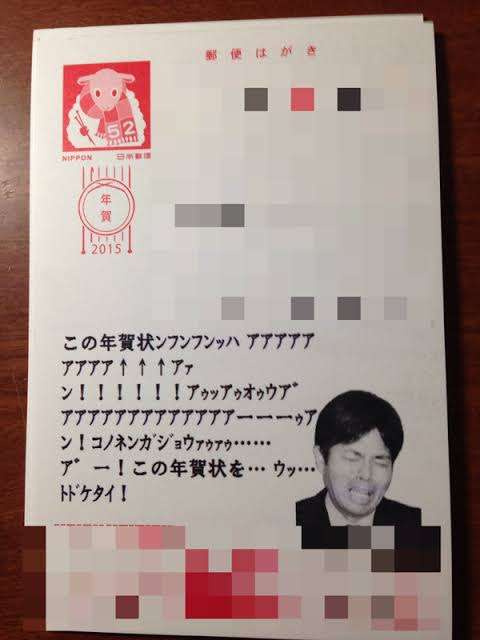 郵便はがき
52
NIPPON 日本郵便
年賀
2015
この年賀状ンフンフンッハ アアアアア
アアアア↑↑↑アァ
ン!!!!!!アゥッアゥオゥウア゛
アアアアアアアアアアアアアーーーゥア
ン!コノネンガジョウァゥァゥ……
ア゛ー!この年賀状を… ウッ…
トドケタイ!